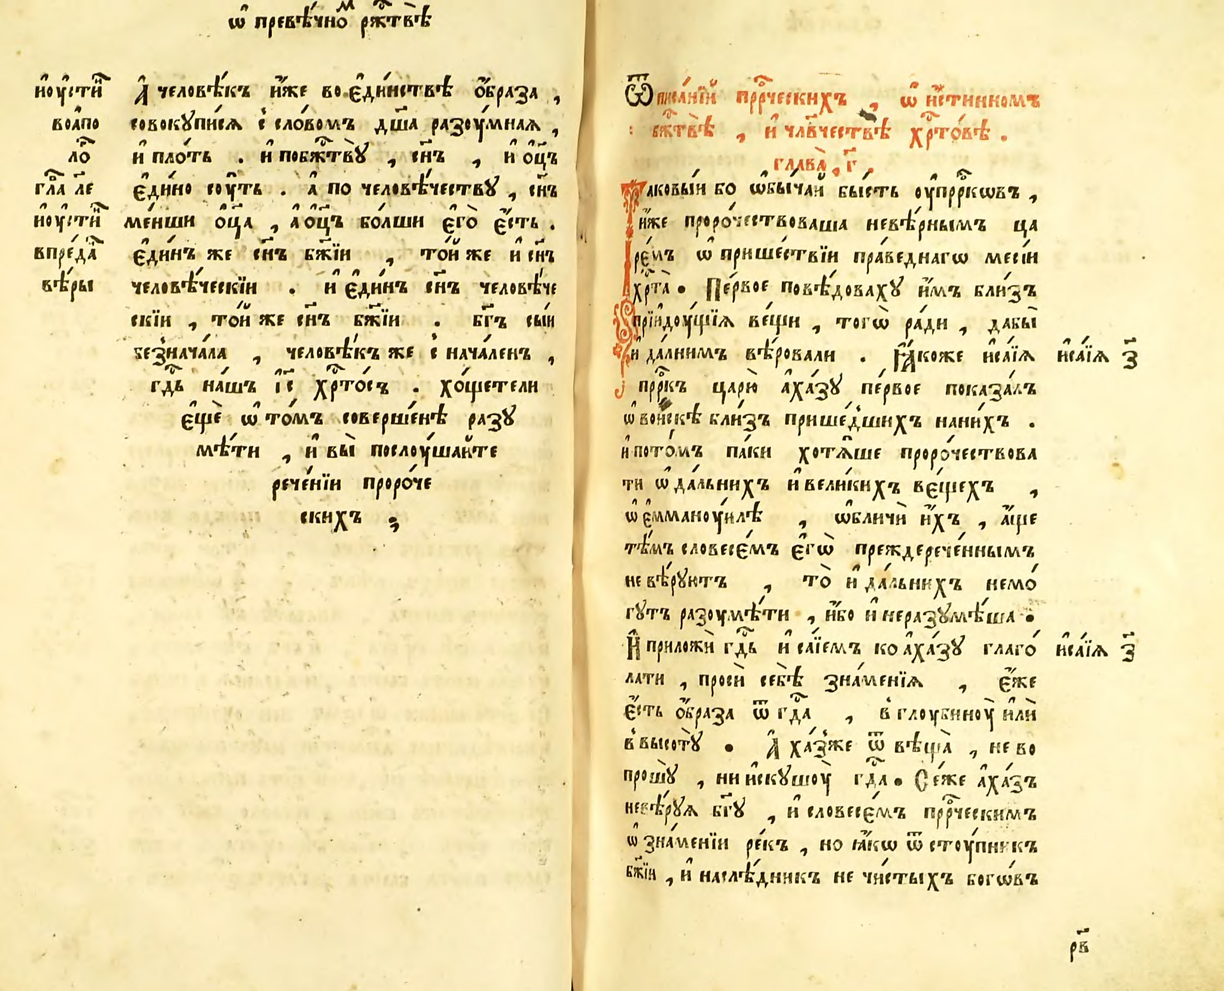 ѡ҆ превѣ́чно ржⷭ҇твѣ
і҆ꙋсті́й
воапо
ло́
гла̀ ле
і҆ꙋсті́й
впре́да
вѣ́ры
А҆ человѣ́къ и҆́же во є҆ди́нствѣ ѡ҆́браза ,
совокупи́сѧ с̾ сло́вомъ дш҃а разоу́мнаѧ ,
и҆ пло́ть . и҆ побжⷭ҇твꙋ̀ , сн҃ъ , и҆ ѻ҆ц҃ъ
є҆ди́но соу́ть . а҆ по человѣ́честву , сн҃ъ
ме́нши ѻ҆ц҃а , а҆ ѻ҆ц҃ъ бо́лши є҆го̀ є҆́сть .
є҆ди́нъ же сн҃ъ бж҃їи , то́и же и҆ сн҃ъ
человѣ́ческїи . и҆ є҆ди́нъ сн҃ъ человѣ́че
скїи , то́и же сн҃ъ бж҃їи . бг҃ъ сы́и
безнача́ла , человѣ́къ же с̾ нача́ленъ ,
гдⷭ҇ь на́шъ і҆с҃ хрⷭ҇то́съ . хо́щетели
є҆щѐ ѡ҆ то́мъ соверше́нѣ разу
мѣ́ти , и҆ вы̀ послоу́шаите
рече́нїи проро́че
скихъ ;
Ѿ писа́нїй прⷪ҇ро́ческихъ , ѡ҆ и҆́стинномъ
бжⷭ҇твѣ̀ , и҆ чл҃вчествѣ хрⷭ҇то́вѣ .
глава̀ , г҃ ,
Таковы́и бо ѡ҆бы́чаи бы́сть оу҆прⷪ҇ркѡвъ ,
и҆́же проро́чествоваша невѣ́рнымъ ца
ре́мъ ѡ҆ прише́ствїи пра́веднагѡ месі́и
хрⷭ҇та̀ . Пе́рвое повѣ́довахꙋ и҆̀мъ бли́зъ
прїидоу́щїѧ ве́щи , тогѡ̀ ра́ди , дабы̀
и҆ да́лнимъ вѣ́ровали . Ꙗ҆́коже и҆са́їѧ
прⷪ҇ркъ царю̀ а҆ха́зꙋ пе́рвое показа́лъ
ѡ҆ во́искѣ бли́зъ прише́дшихъ нани́хъ .
и҆ пото́мъ па́ки хотѧ̀ше проро́чествова
ти ѡ҆ да́льнихъ и҆ вели́кихъ ве́щехъ ,
ѡ҆ є҆ммано́уилѣ , ѡ҆бличѝ и҆́хъ , а҆́ще
тѣ́мъ словесе́мъ є҆гѡ̀ преждерече́ннымъ
не вѣ́руютъ , то̀ и҆ да́льнихъ немо́
гутъ разоумѣ́ти , и҆́бо и҆ неразумѣ́ша .
И҆ приложѝ гдⷭ҇ь и҆ са́їемъ ко а҆ха́зꙋ глаго́
лати , просѝ себѣ̀ зна́менїѧ , є҆́же
є҆́сть ѡ҆́браза ѿ гдⷭ҇а , в̾ глоубиноу̀ и҆лѝ
в̾ высотꙋ̀ . А҆ ха́зже ѿ вѣща̀ , не во
прошꙋ̀ , ни и҆скушоу̀ гдⷭ҇а . Се́же а҆ха́зъ
невѣ́руѧ бг҃ꙋ , и҆ словесе́мъ прⷪ҇ро́ческимъ
ѡ҆ зна́менїи ре́къ , но ꙗ҆́кѡ ѿ стоу́пникъ
бж҃їи , и҆ наслѣ́дникъ не чи́стыхъ бого́въ
и҆са́їѧ з҃
и҆са́їѧ з҃
рв҃